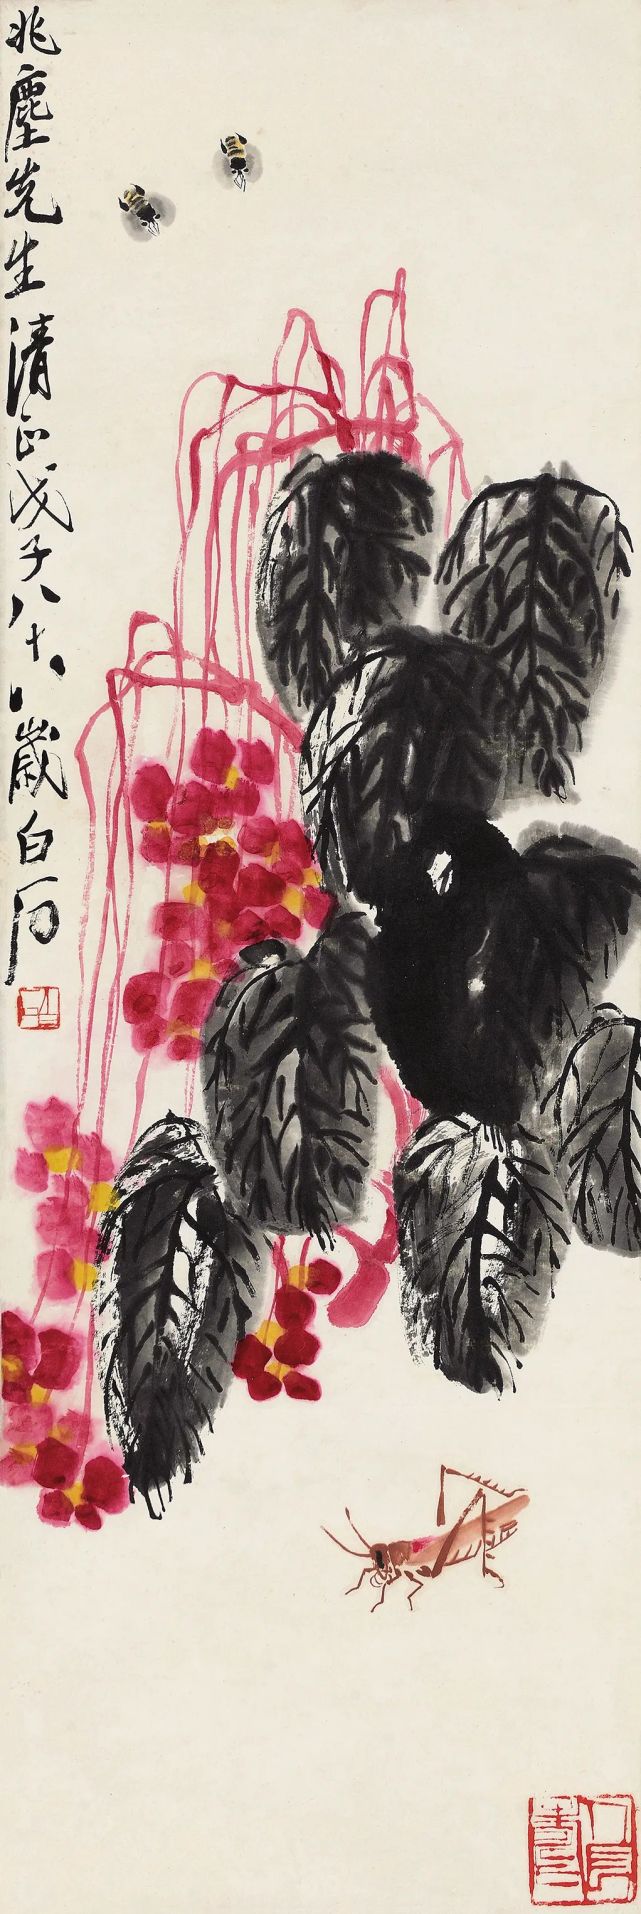 兆塵先生清正戊子八十八歲白石